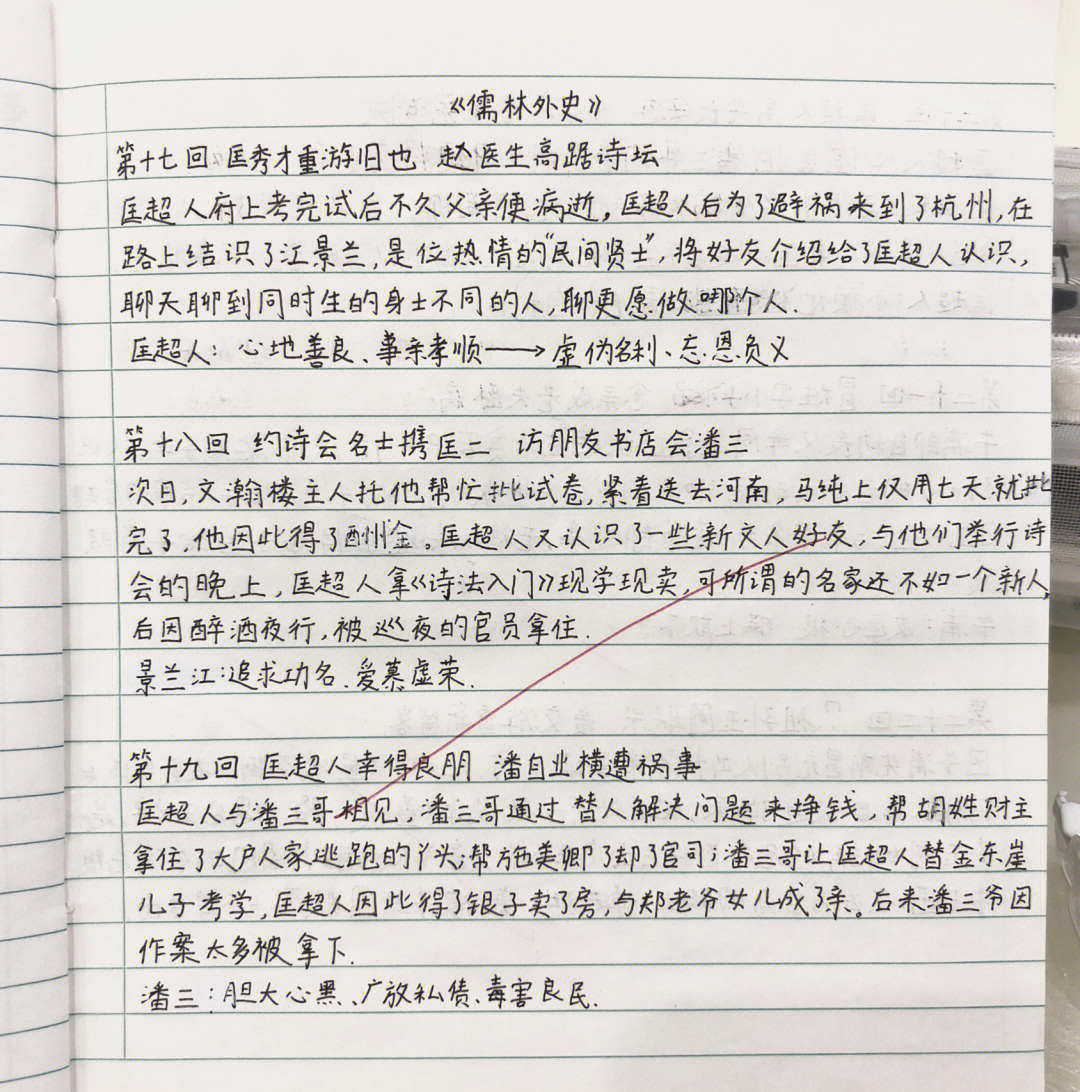 《儒林外史》
第十七回 匡秀才重游旧也 赵医生高踞诗坛
匡超人府上考完试后不久父亲便病逝，匡超人台为了避祸来到了杭州，在
路上结识了江景兰，是位热情的"民间贤士"，将好友介绍给了匡超人认识，
聊天聊到同时生的身士不同的人，聊更愿做哪个人.
匡超人：心地善良、事亲孝顺⟶虚伪名利、忘恩负义
第十八回 约诗会名士携匡二 访朋友书店会潘三
次日，文瀚楼主人托他帮忙批试卷，紧着送去河南，马纯上仅用七天就批
完了，他因此得了酬金。匡超人又认识了一些新文人好友，与他们举行诗
会的晚上，匡超人拿《诗法入门》现学现卖，可所谓的名家还不如一个新人，
后因醉酒夜行，被巡夜的官员拿住.
景兰江：追求功名、爱慕虚荣.
第十九回 匡超人幸得良朋 潘自业横遭祸事
匡超人与潘三哥相见，潘三哥通过替人解决问题来挣钱，帮胡姓财主
拿住了大户人家逃跑的丫头；帮施美卿了却了官司；潘三哥让匡超人替金东崖
儿子考学，匡超人因此得了银子卖了房，与郑老爷女儿成了亲。后来潘三爷因
作案太多被拿下.
潘三：胆大心黑、广放私债、毒害良民.